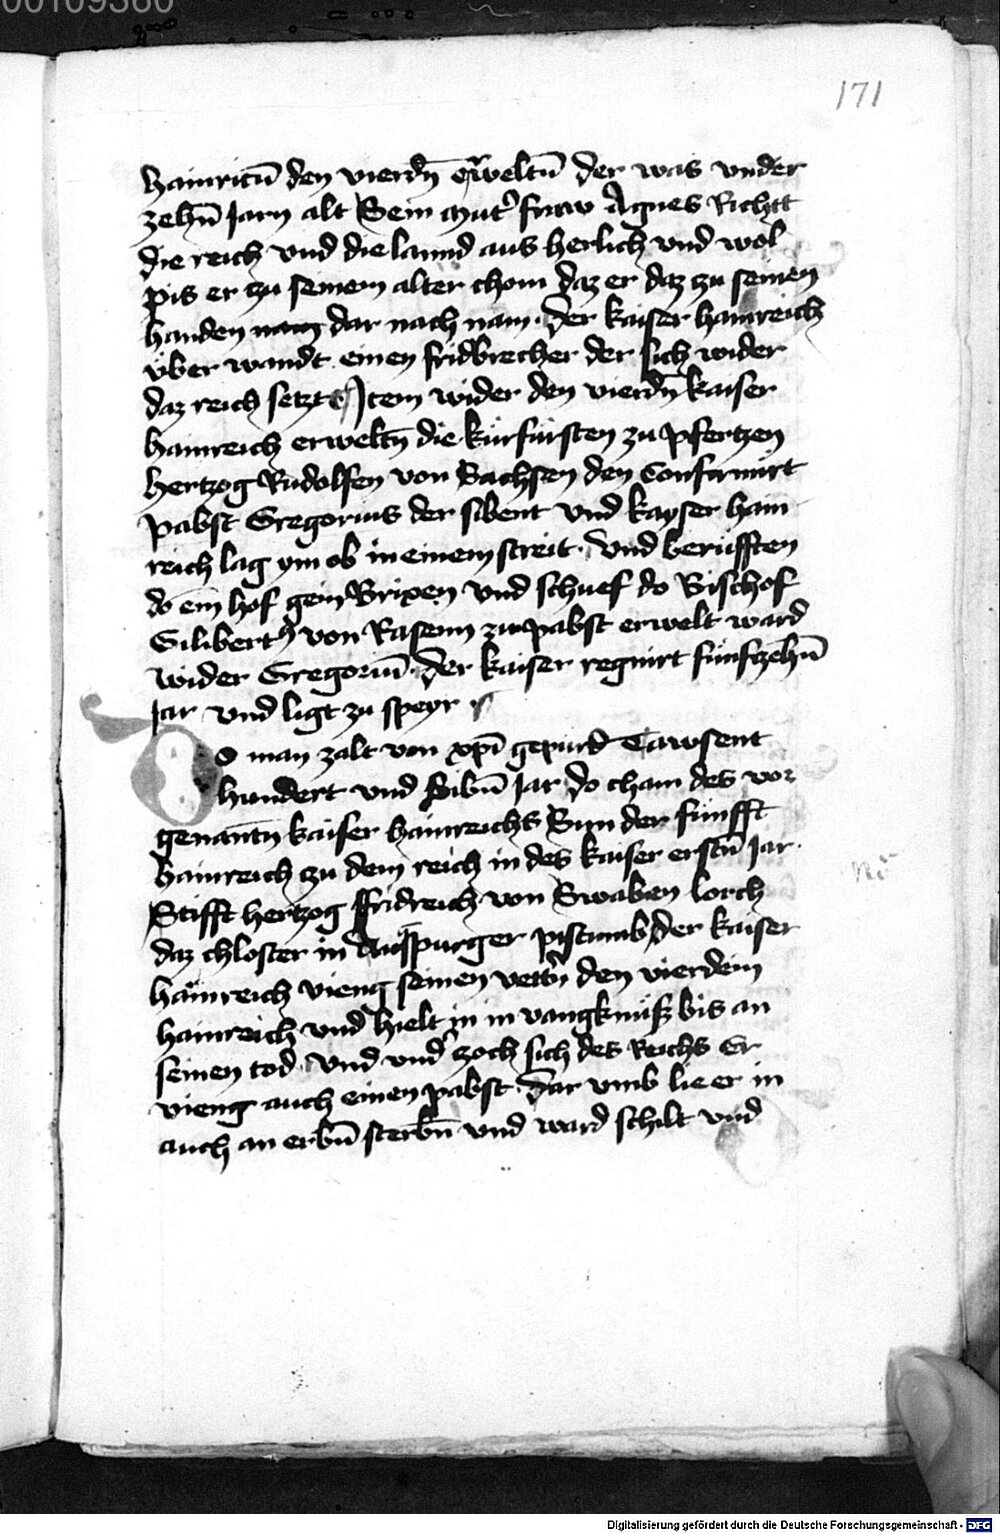 00109380
171
hainricū den vierdn̄ erweltn̄ der was vnder
zehn̄ Jarn alt Sein mut' fraw Agnes Richtt
die reich vnd die lannd aus herlich vnd wol
pis er zu seinem alter chom daz er daz zu seinen
handen nam dar nach nam. der kaiser hainreich
über wandt einen fridbrecher der sich wider
daz reich setzt Item wider den vierdn̄ kaiser
hainreich erweltn̄ die kürfürsten zu pfertzen
hertzog Rudolfen von Sachsen den Confirmirt
pabst Gregorius der sibent vnd kayser hain
reich lag ym ob in einem streit. vnd berüfften
do ein hof gein Brixen vnd schuef do Bischof
Gilibert9 von Rafenn zu pabst erwelt ward
wider Gregoriū. der kaiser regnirt fünfzehn̄
Jar vnd ligt zu speyr
Do man zalt von xp̄i gepurd Tawsent
hundert vnd Sibn̄ Jar do cham des vor
genantn̄ kaiser hainreichs Sun der fünfft
hainreich zu dem reich in des kaiser erstn̄ Jar.
Stifft hertzog ffridreich von Swaben lorch
daz chloster in Auspurger pistumb der kaiser
hainreich vieng seinen vettn̄ den vierdem
hainreich vnd hielt in in vangknüß bis an
seinen tod. vnd vnd' zoch sich des Reichs Er
vieng auch einen pabst. Dar vmb lie er in
auch an erbn̄ sterbn̄ vnd ward schilt vnd
Digitalisierung gefördert durch die Deutsche Forschungsgemeinschaft - DFG